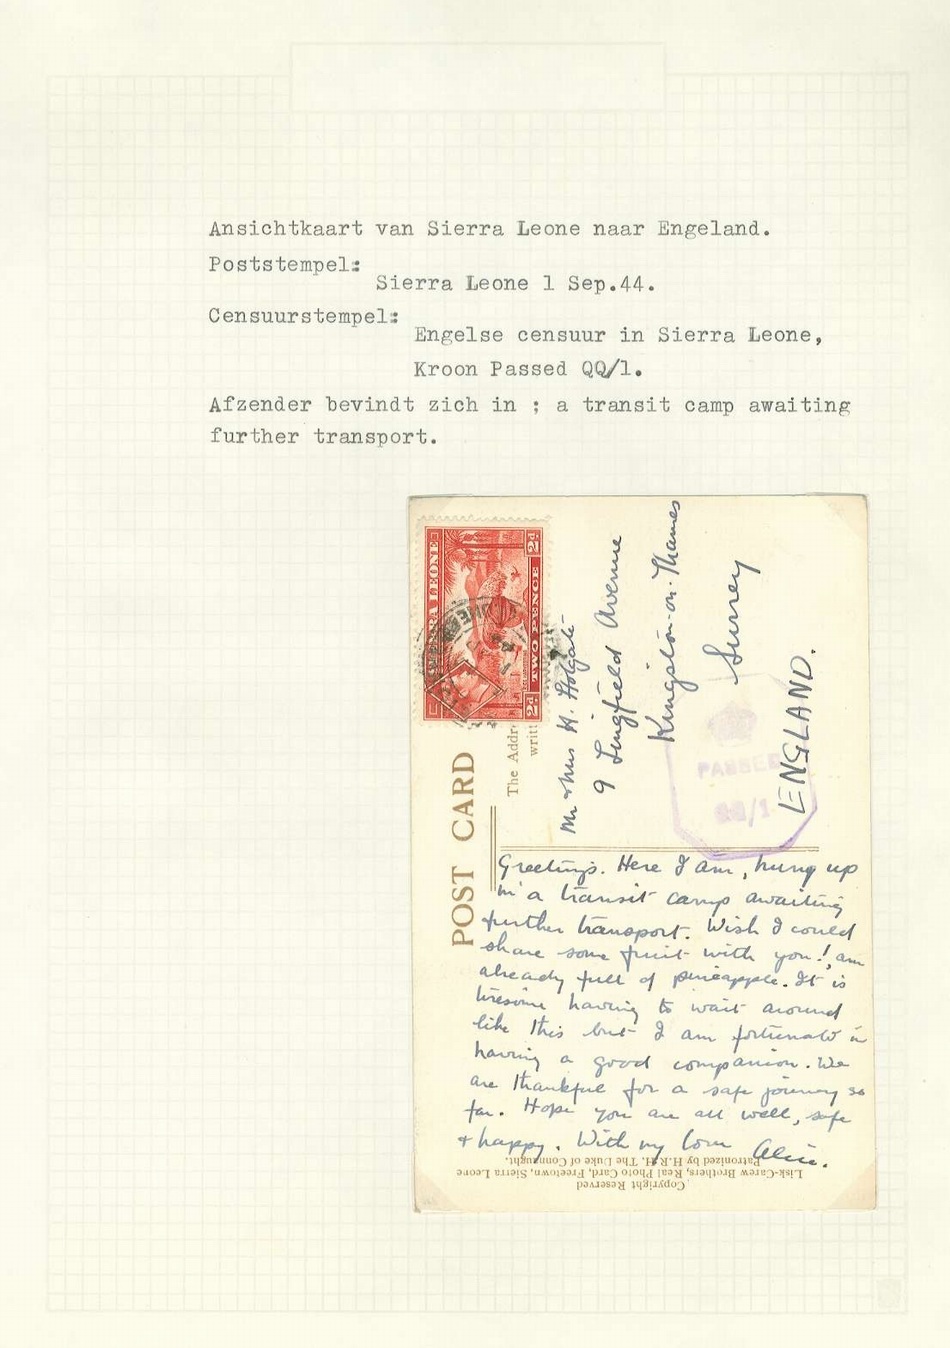 Ansichtkaart van Sierra Leone naar Engeland.
Poststempel:
Sierra Leone 1 Sep.44.
Censuurstempel:
Engelse censuur in Sierra Leone,
Kroon Passed QQ/1.
Afzender bevindt zich in ; a transit camp awaiting
further transport.
SIERRA LEONE
2d TWO PENCE 2d
POST CARD
The Addr
writt
Mr & Mrs H. Holgate
9 Lingfield Avenue
Kingston-on-Thames
Surrey
ENGLAND.
PASSED
QQ/1
Greetings. Here I am, hung up
in a transit camp awaiting
further transport. Wish I could
share some fruit with you! am
already full of pineapple. It is
tiresome having to wait around
like this but I am fortunate in
having a good companion. We
are thankful for a safe journey so
far. Hope you are all well, safe
& happy. With my love
Patronized by H.R.H. The Duke of Connaught.
Lisk-Carew Brothers, Real Photo Card, Freetown, Sierra Leone
Copyright Reserved